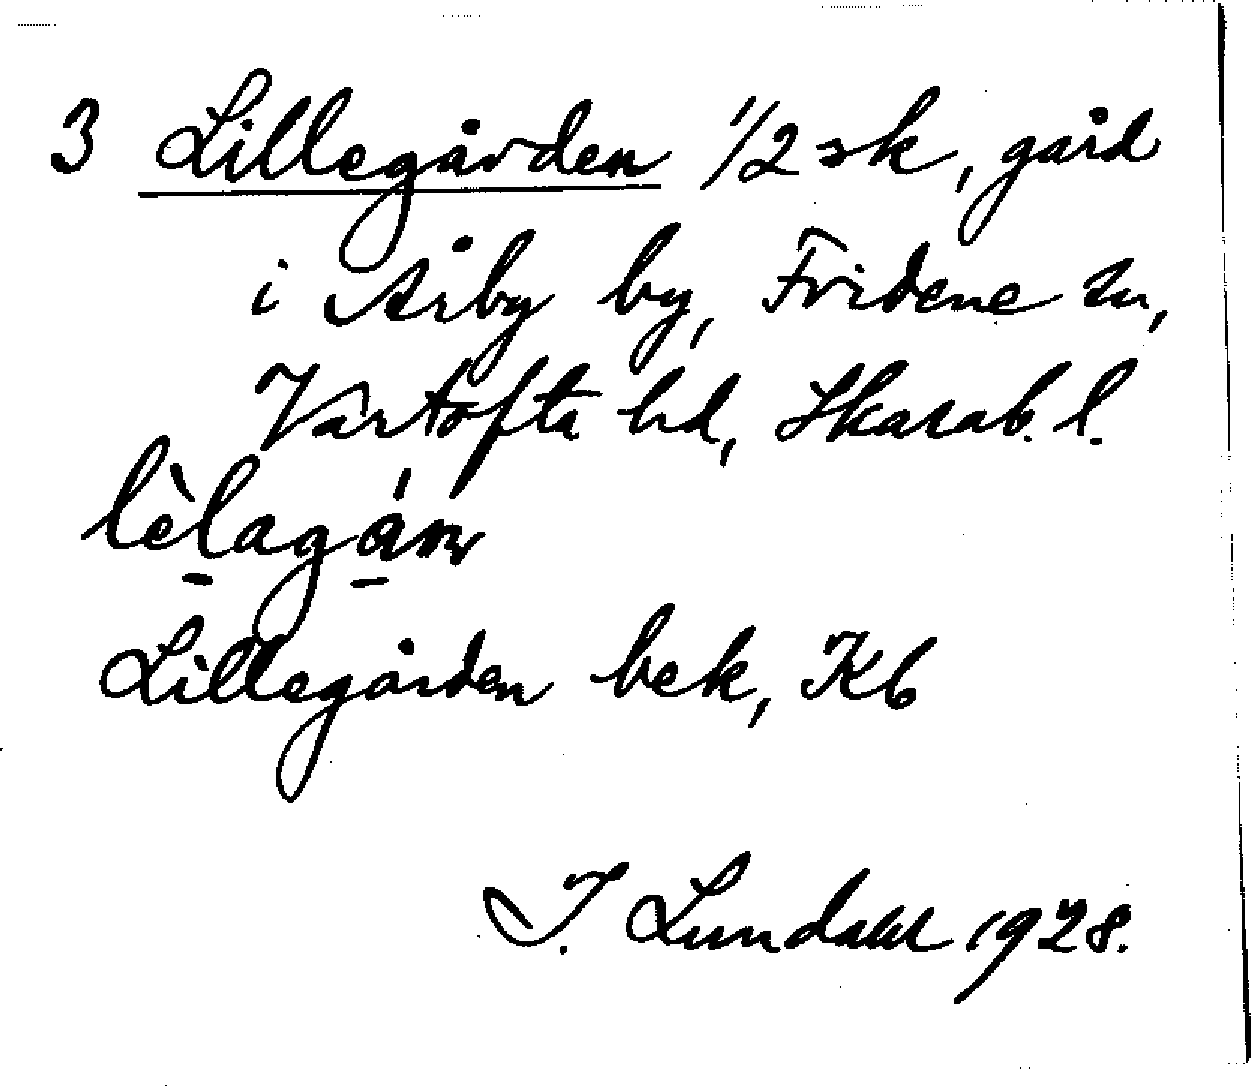 3 Lillegården 1/2 sk, gård
i Årby by, Fridene sn,
Vartofta hd, Skarab. l.
Lillegården bek, Kb
I. Lundahl 1928.